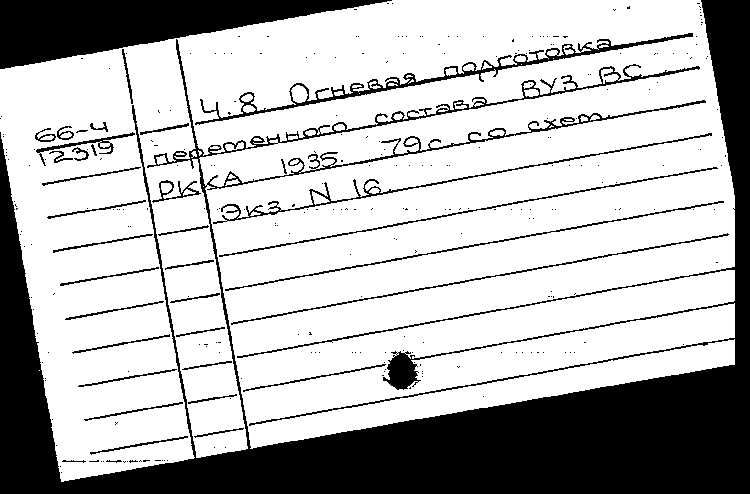 Ч.8 Огневая подготовка
66-4
12319
переменного состава ВУЗ ВС
РККА 1935. 79с. со схем.
Экз. N 16.